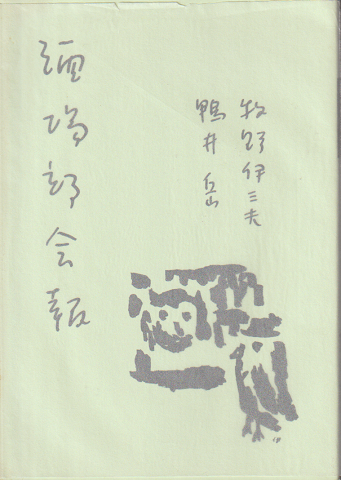 牧野伊三夫
鴨井岳
酒場部会報